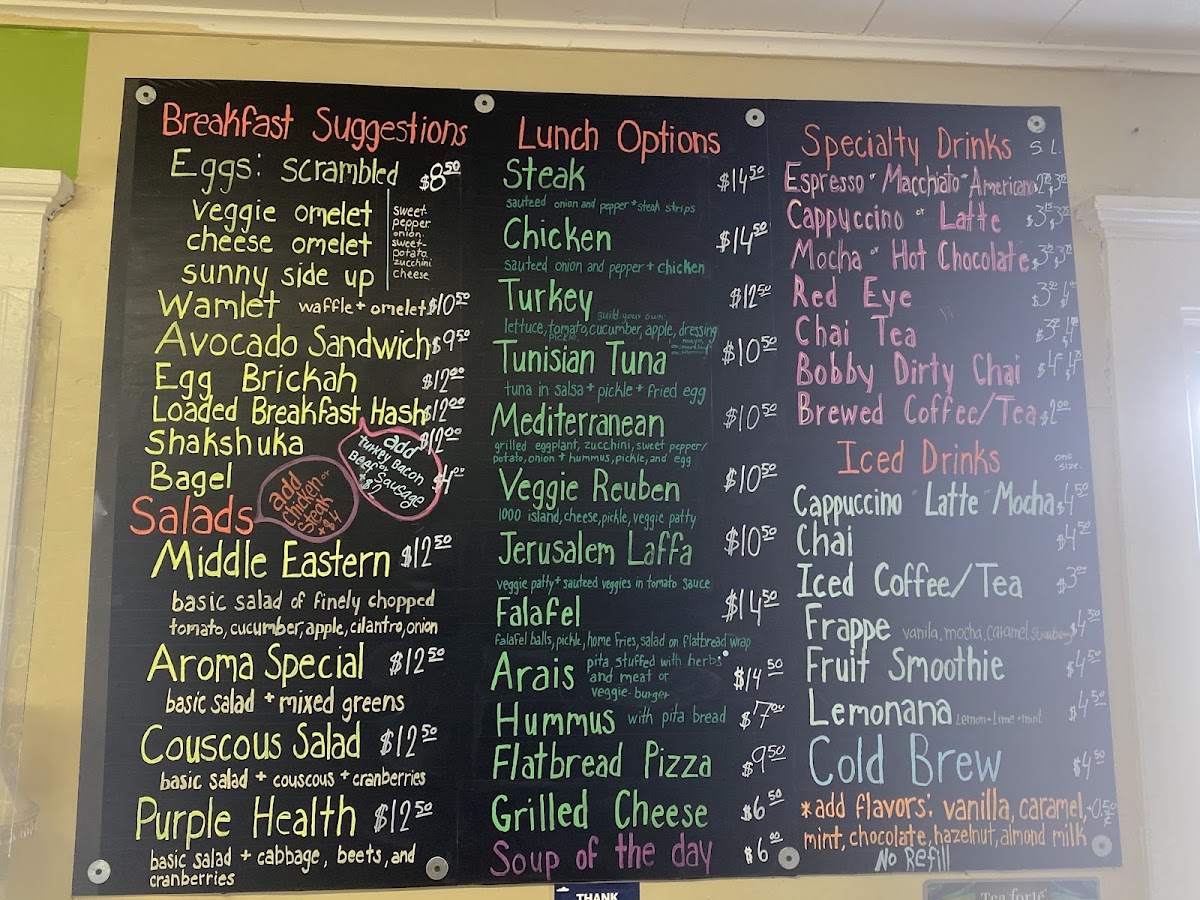 Breakfast Suggestions
Eggs: scrambled $8.50
veggie omelet
cheese omelet
sunny side up
sweet
pepper
onion
sweet-
potato
zucchini
cheese
Wamlet waffle + omelet $10.50
Avocado Sandwich $9.50
Egg Brickah $12.00
Loaded Breakfast Hash $12.00
Shakshuka $12.00
Bagel $4.00
add
Turkey Bacon
or
Beef Sausage
+$2
Salads
add
chicken or
steak
+$4
Middle Eastern $12.50
basic salad of finely chopped
tomato, cucumber, apple, cilantro, onion
Aroma Special $12.50
basic salad + mixed greens
Couscous Salad $12.50
basic salad + couscous + cranberries
Purple Health $12.50
basic salad + cabbage, beets, and
cranberries
Lunch Options
Steak $14.50
sauteed onion and pepper + steak strips
Chicken $14.50
sauteed onion and pepper + chicken
Turkey $12.50
Build your own:
lettuce, tomato, cucumber, apple, dressing
pickle,
Tunisian Tuna $10.50
tuna in salsa + pickle + fried egg
Mediterranean $10.50
grilled eggplant, zucchini, sweet pepper/
potato, onion + hummus, pickle, and egg
Veggie Reuben $10.50
1000 island, cheese, pickle, veggie patty
Jerusalem Laffa $10.50
veggie patty + sauteed veggies in tomato sauce
Falafel $14.50
falafel balls, pickle, home fries, salad on flatbread wrap
Arais $14.50
pita stuffed with herbs
and meat or
veggie-burger
Hummus with pita bread $7.00
Flatbread Pizza $9.50
Grilled Cheese $6.50
Soup of the day $6.00
Specialty Drinks S. L.
Espresso or Macchiato or Americano
Cappuccino or Latte
Mocha or Hot Chocolate
Red Eye
Chai Tea
Bobby Dirty Chai
Brewed Coffee/Tea $2.00
Iced Drinks one size.
Cappuccino or Latte or Mocha $4.50
Chai $4.50
Iced Coffee/Tea $3.00
Frappe vanila, mocha, caramel, strawberry $4.50
Fruit Smoothie $4.50
Lemonana Lemon + Lime + mint $4.50
Cold Brew $4.50
*add flavors: vanilla, caramel, +0.50
mint, chocolate, hazelnut, almond milk
No Refill
THANK
Tea forte